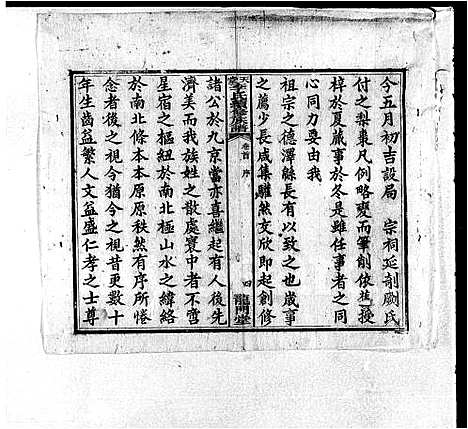 今五月初吉設局　宗祠延剞劂氏
付之梨棗凡例略變而筆削依舊授
梓於夏蕆事於冬是雖任事者之同
心同力要由我
祖宗之德澤緜長有以致之也歲事
之薦少長咸集驩然文欣即起創修
李氏續修族譜
卷首　序
四
龍門堂
諸公於九京當亦喜繼起有人後先
濟美而我族姓之散處寰中者不啻
星宿之樞紐於南北極山水之緯絡
於南北條本本原原秩然有序所惓
念者後之視今猶今之視昔更數十
年生齒益繁人文益盛仁孝之士尊